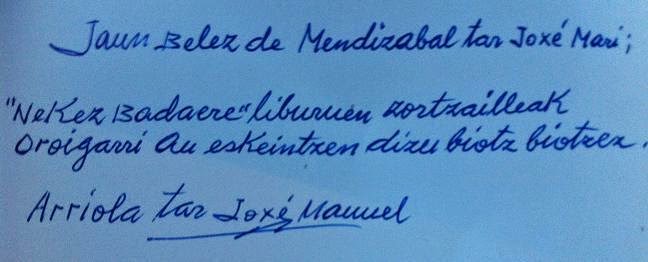 Jaun Belez de Mendizabal tar Joxé Mari;
"Nekez Badaere" liburuen sortzailleak
Oroigarri Au eskeintzen dizu biotz biotzez.
Arriola tar Joxé Manuel